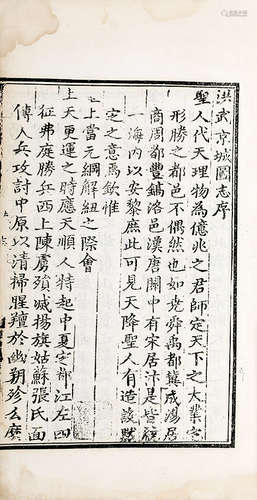 洪武京城圖志序
聖人代天理物為億兆之君師定天下之大業必
形勝之都邑不偶然也如堯舜禹都冀成湯居
商周都豐鎬洛邑漢唐關中有宋居汴是皆
一海內以安黎庶此可見天降聖人有造設默
定之意焉欽惟
上當元綱解紐之際會
上天更運之時應天順人特起中夏定都江左四
征弗庭勝兵西上陳虜殞滅揚旗姑蘇張氏面
傳人兵攻討中原以清掃腥羶於幽朔殄么麼